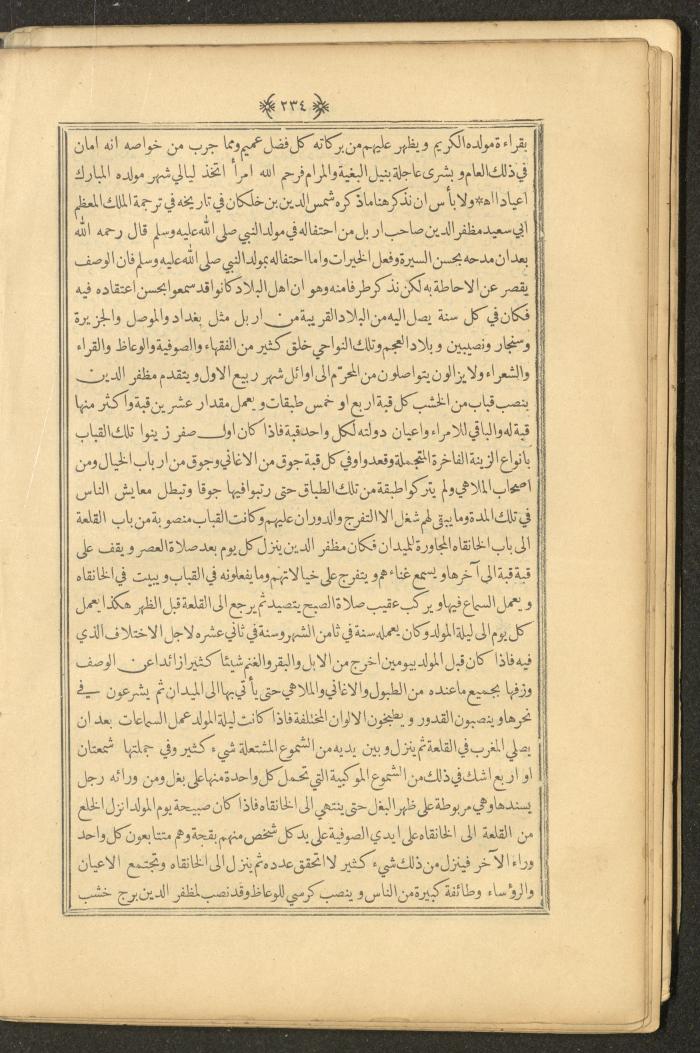 ﴿٢٣٤﴾
بقراءة مولده الكريم ويظهر عليهم من بركاته كل فضل عميم ومما جرب من خواصه انه امان
في ذلك العام وبشرى عاجلة بنيل البغية والمرام فرحم الله امرأ اتخذ ليالي شهر مولده المبارك
اعيادا اه * ولا بأس ان نذكر هنا ما ذكره شمس الدين بن خلكان في تاريخه في ترجمة الملك المعظم
ابي سعيد مظفر الدين صاحب اربل من احتفاله في مولد النبي صلى الله عليه وسلم قال رحمه الله
بعد ان مدحه بحسن السيرة وفعل الخيرات واما احتفاله بمولد النبي صلى الله عليه وسلم فان الوصف
يقصر عن الاحاطة به لكن نذكر طرفا منه وهو ان اهل البلاد كانوا قد سمعوا بحسن اعتقاده فيه
فكان في كل سنة يصل اليه من البلاد القريبة من اربل مثل بغداد والموصل والجزيرة
وسنجار ونصيبين وبلاد العجم وتلك النواحي خلق كثير من الفقهاء والصوفية والوعاظ والقراء
والشعراء ولا يزالون يتواصلون من المحرّم الى اوائل شهر ربيع الاول ويتقدم مظفر الدين
بنصب قباب من الخشب كل قبة اربع او خمس طبقات ويعمل مقدار عشرين قبة واكثر منها
قبة له والباقي للامراء واعيان دولته لكل واحد قبة فاذا كان اول صفر زينوا تلك القباب
بانواع الزينة الفاخرة المتجملة وقعدوا في كل قبة جوق من الاغاني وجوق من ارباب الخيال ومن
اصحاب الملاهي ولم يتركوا طبقة من تلك الطباق حتى رتبوا فيها جوقا وتبطل معايش الناس
في تلك المدة وما يبقى لهم شغل الا التفرج والدوران عليهم وكانت القباب منصوبة من باب القلعة
الى باب الخانقاه المجاورة للميدان فكان مظفر الدين ينزل كل يوم بعد صلاة العصر ويقف على
قبة قبة الى آخرها ويسمع غناءهم ويتفرج على خيالاتهم وما يفعلونه في القباب ويبيت في الخانقاه
ويعمل السماع فيها ويركب عقيب صلاة الصبح يتصيد ثم يرجع الى القلعة قبل الظهر هكذا يعمل
كل يوم الى ليلة المولد وكان يعمله سنة في ثامن الشهر وسنة في ثاني عشره لاجل الاختلاف الذي
فيه فاذا كان قبل المولد بيومين اخرج من الابل والبقر والغنم شيئا كثيرا زائدا عن الوصف
وزفها بجميع ما عنده من الطبول والاغاني والملاهي حتى يأتي بها الى الميدان ثم يشرعون في
نحرها وينصبون القدور ويطبخون الالوان المختلفة فاذا كانت ليلة المولد عمل السماعات بعد ان
يصلي المغرب في القلعة ثم ينزل وبين يديه من الشموع المشتعلة شيء كثير وفي جملتها شمعتان
او اربع اشك في ذلك من الشموع الموكبية التي تحمل كل واحدة منها على بغل ومن ورائه رجل
يسندها وهي مربوطة على ظهر البغل حتى ينتهي الى الخانقاه فاذا كان صبيحة يوم المولد انزل الخلع
من القلعة الى الخانقاه على ايدي الصوفية على يد كل شخص منهم بقجة وهم متتابعون كل واحد
وراء الآخر فينزل من ذلك شيء كثير لا اتحقق عدده ثم ينزل الى الخانقاه وتجتمع الاعيان
والرؤساء وطائفة كبيرة من الناس وينصب كرسي للوعاظ وقد نصب لمظفر الدين برج خشب